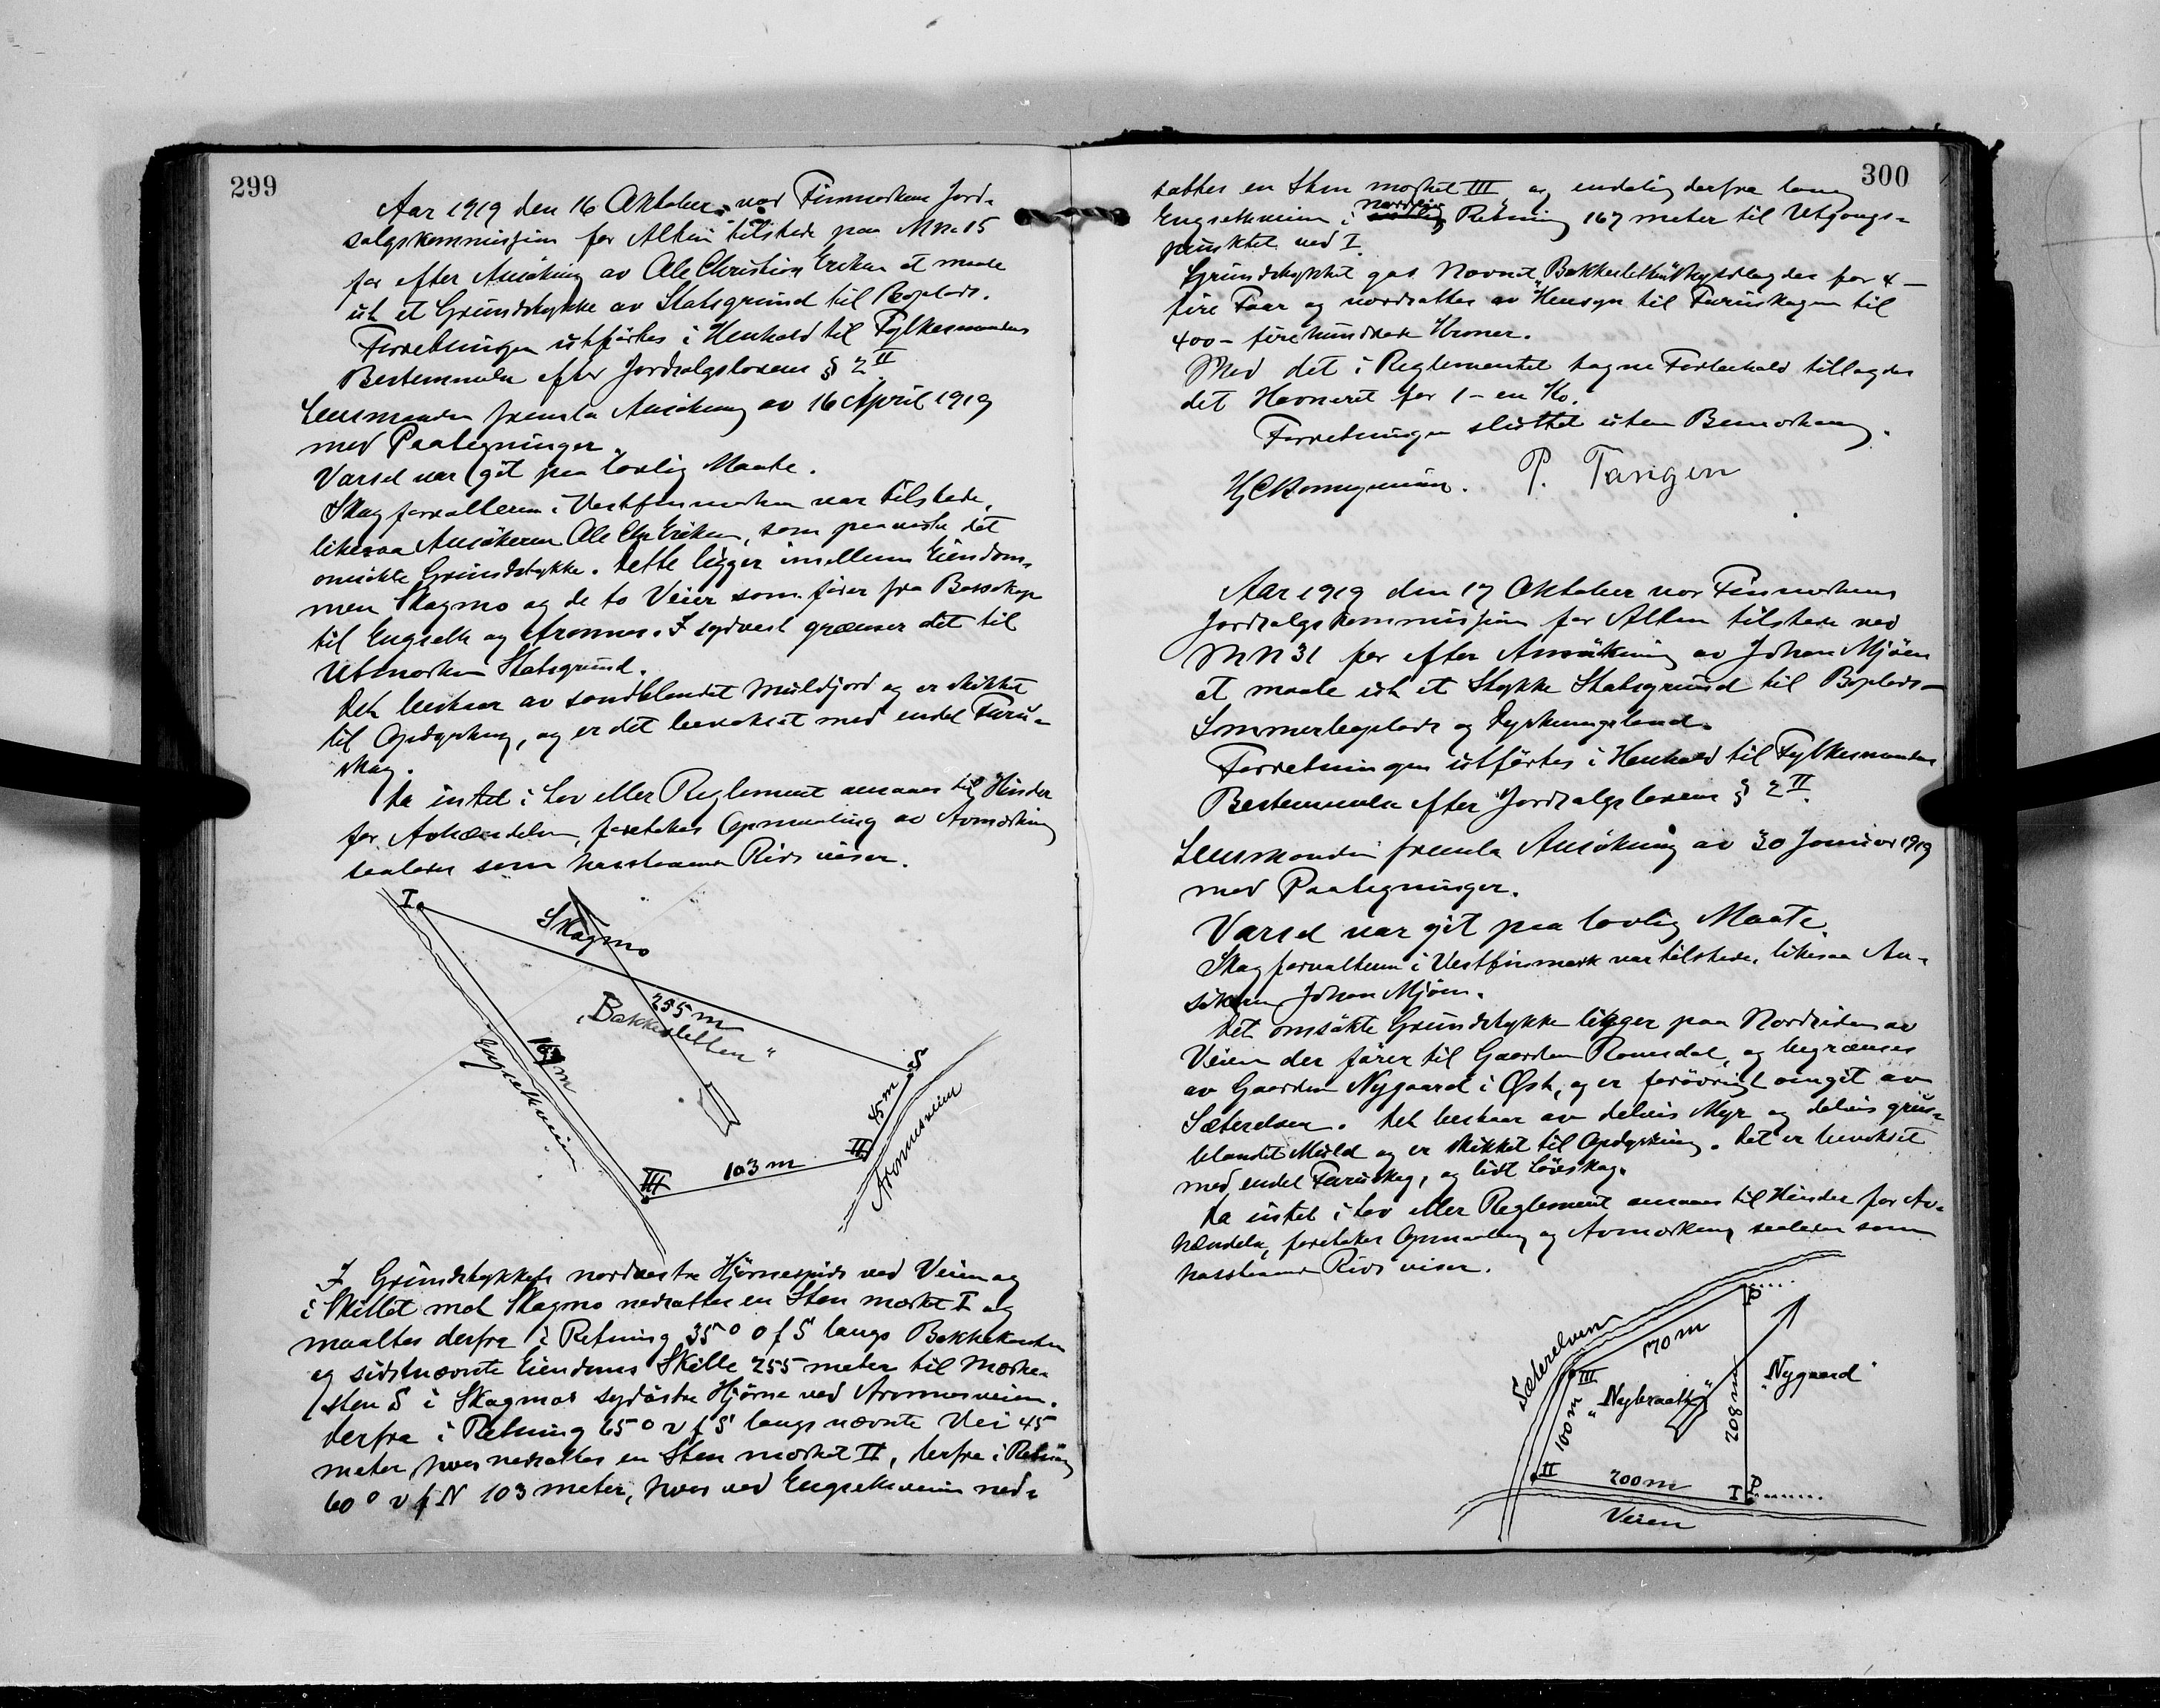 299
Aar 1919 den 16 Oktober var Finmarkens Jord-
salgskommission for Alten tilstede paa M.n. 15
for efter Ansökning av Ole Christian Eriksen at maale
ut et Grundstykke av Statsgrund til Boplads.
Forretningen utförtes i Henhold til Fylkesmandens
Bestemmelse efter Jordsalgslovens § 2 II
Lensmanden fremla Ansökning av 16 April 1919
med Paategninger.
Varsel var git paa lovlig Maate.
Skogforvalteren i Vestfinmarken var tilstede,
likesaa Ansökeren Ole Chr Eriksen, som paaviste det
omsökte Grundstykke. Dette ligger imellem Eiendom-
men Skogmo og de to Veier som förer fra Bossekop
til Engselk og Aronnes. I sydvest grænser det til
Utmarken Statsgrund.
Det bestaar av sandblandet Muldjord og er skikket
til Opdyrkning, og er det bevokset med endel Furu-
skog.
Da intet i Lov eller Reglement ansaaes til Hinder
for Avhændelse, foretokes Opmaaling av Avmerkning
saaledes som hosstaaende Rids viser.
I
Skogmo
255 m
"Bakkesletten"
167 m
S
45 m
II
103 m
III
Aronnesveien
I Grundstykkets nordvestre Hjörnespids ved Veien og
i Skillet mot Skogmo nedsattes en Sten merket I og
maaltes derfra i Retning 35° o f S langs Bakkekanten
og sidstnævnte Eiendoms Skille 255 meter til Merke-
sten S i Skogmos sydöstre Hjörne ved Aronnesveien.
Derfra i Retning 65° v f S langs nævnte Vei 45
meter, hvor nedsattes en Sten merket II, derfra i Retning
60° v f N 103 meter, hvor ved Engselkveien ned-
300
sattes en Sten merket III og endelig derfra langs
Engselkveien i nordlig Retning 167 meter til Utgangs-
punktet ved I.
Grundstykket gas Navnet "Bakkesletten" skyldlagdes for 4 -
fire Faar og værdsattes av Hensyn til Furuskogen til
400 - firehundrede Kroner.
Med det i Reglementet tagne Forbehold tillagdes
det Havneret for 1 - en Ko.
Forretningen sluttet uten Bemerkning.
P. Tangen
Aar 1919 den 17 Oktober var Finmarkens
Jordsalgskommission for Alten tilstede ved
M N 31 for efter Ansökning av Johan Mjöen
at maale ut et Stykke Statsgrund til Boplads -
Sommerboplads og Dyrkningsland.
Forretningen utförtes i Henhold til Fylkesmandens
Bestemmelse efter Jordsalgslovens § 2 II.
Lensmanden fremla Ansökning av 30 Januar 1919
med Paategninger.
Varsel var git paa lovlig Maate
Skogforvalteren i Vestfinmark var tilstede, likesaa An-
sökeren Johan Mjöen.
Det omsökte Grundstykke ligger paa Nordsiden av
Veien der förer til Gaarden Romsdal, og begrænses
av Gaarden Nygaard i Øst, og er forövrigt omgit av
Sæterelven. Det bestaar av delvis Myr og delvis grus-
blandet Muld og er skikket til Opdyrkning. Det er bevokset
med endel Furuskog, og lidt Lövskog.
Da intet i Lov eller Reglement ansaaes til Hinder for Av-
hændelse, foretokes Opmaaling og Avmerkning saaledes som
hosstaaende Rids viser.
Sæterelven
P.....
70 m
III
"Nybraatt"
"Nygaard"
100 m
208 m
II
200 m
I P.......
Veien